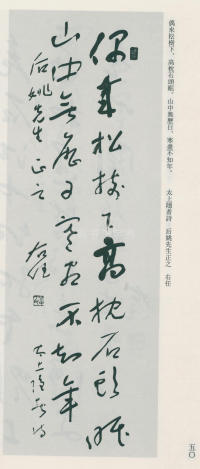 偶來松樹下高枕石頭眠
山中無歷日寒盡不知年
后姚先生正之 右任
太上隱者詩
偶來松樹下、高枕石頭眠。山中無歷日、寒盡不知年。 太上隱者詩 后姚先生正之 右任
五〇